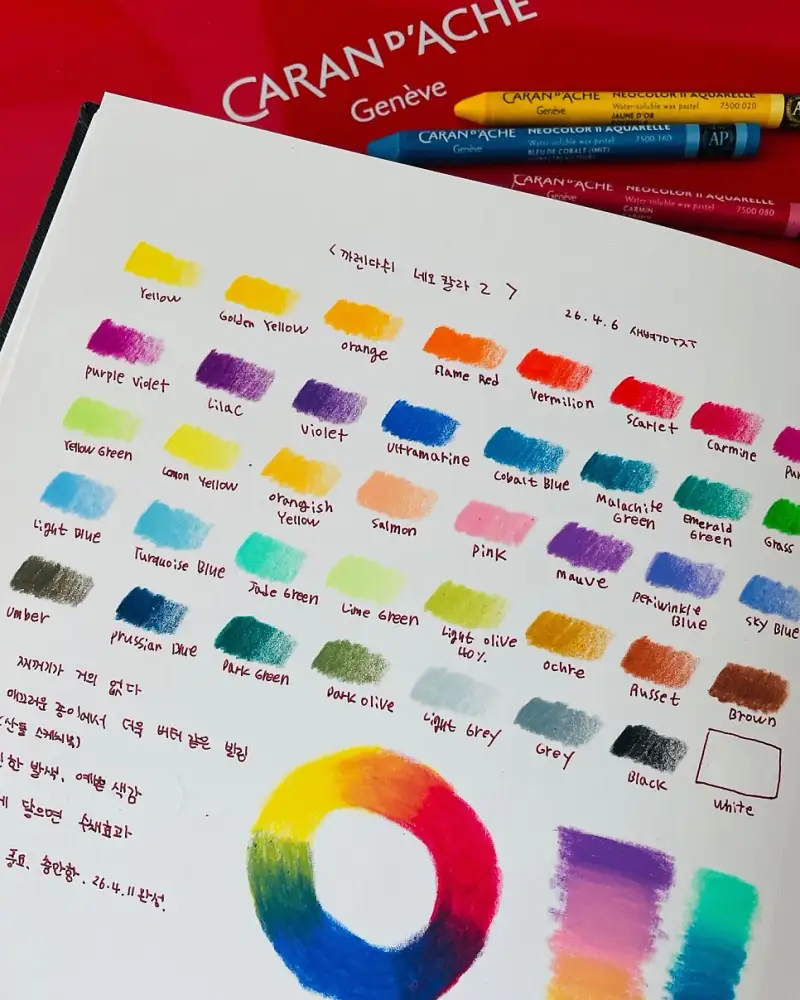 CARAN D'ACHE
Genève
CARAN D'ACHE NEOCOLOR II AQUARELLE
Genève Water-soluble wax pastel 7500.020
JAUNE D'OR
CARAN D'ACHE NEOCOLOR II AQUARELLE
Genève Water-soluble wax pastel 7500.160 AP
BLEU DE COBALT (IMIT)
CARAN D'ACHE NEOCOLOR II AQUARELLE
Genève Water-soluble wax pastel 7500.080
CARMIN
<까렌다쉬 네오칼라 2>
26.4.6 새벽
Yellow Golden Yellow Orange Flame Red Vermilion Scarlet Carmine
Purple Violet Lilac Violet Ultramarine Cobalt Blue Malachite Green Emerald Green Grass
Yellow Green Lemon Yellow Orangish Yellow Salmon Pink Mauve Periwinkle Blue Sky Blue
Light Blue Turquoise Blue Jade Green Lime Green Light Olive 40% Ochre Russet Brown
Umber Prussian Blue Dark Green Dark Olive Light Grey Grey Black White
찌꺼기가 거의 없다
매끄러운 종이에서 더욱 버터 같은 발림
(산돌 스케치북)
한 발색, 예쁜 색감
닿으면 수채효과
26.4.11 완성.